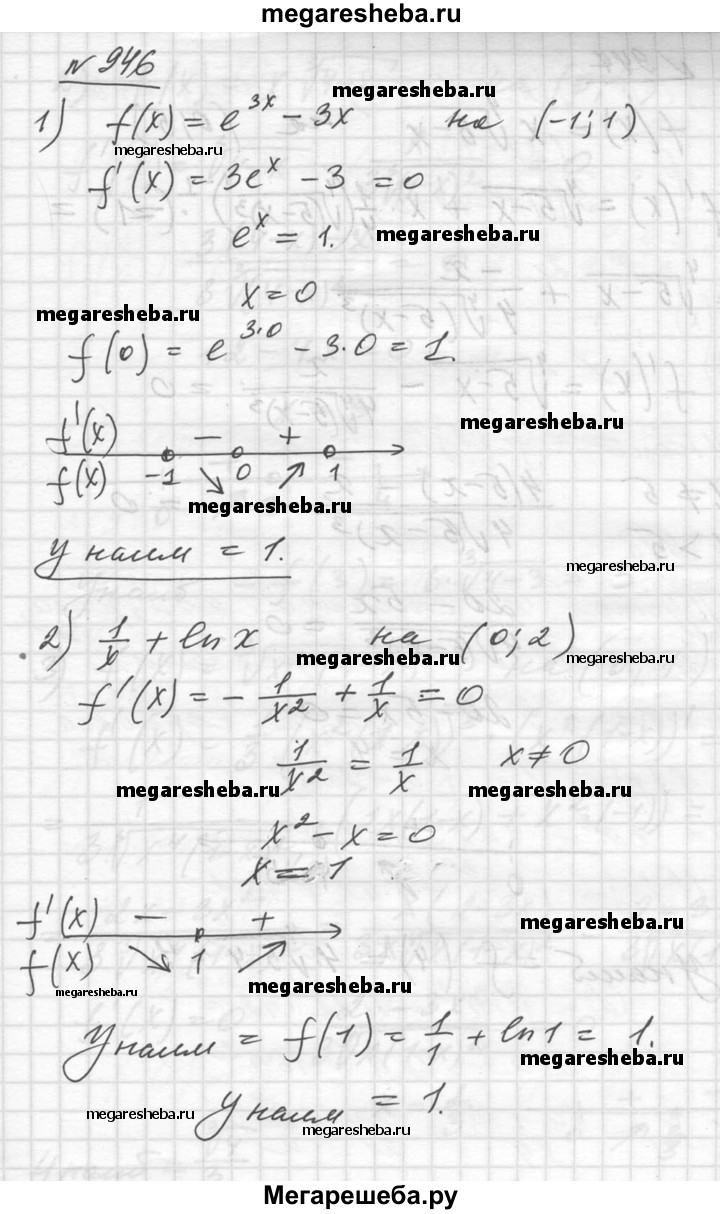 megaresheba.ru
№ 946
megaresheba.ru
1) f(x) = e^{3x} - 3x на (-1; 1)
megaresheba.ru
f'(x) = 3e^x - 3 = 0
e^x = 1.
megaresheba.ru
x = 0
megaresheba.ru
f(0) = e^{3·0} - 3·0 = 1.
f'(x) - +
megaresheba.ru
f(x) -1 ↘ 0 ↗ 1
megaresheba.ru
y наим = 1.
megaresheba.ru
2) 1/x + ln x на (0; 2)
megaresheba.ru megaresheba.ru
f'(x) = - 1/x² + 1/x = 0
1/x² = 1/x x ≠ 0
megaresheba.ru megaresheba.ru
x² - x = 0
x = 1
f'(x) - +
megaresheba.ru
f(x) ↘ 1 ↗
megaresheba.ru megaresheba.ru
y наим = f(1) = 1/1 + ln 1 = 1.
megaresheba.ru
y наим = 1.
megaresheba.ru
megaresheba.ru
Мегарешеба.ру